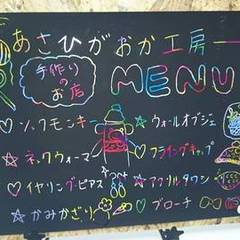 あさひがおか工房
手作りの
お店
MENU
♡ソックモンキー
☆ウォールオブジェ
☆ネックウォーマー
♡フライングキャップ
♡イヤリング・ピアス
☆アクリルタワシ
☆かみかざり
♡ブローチ